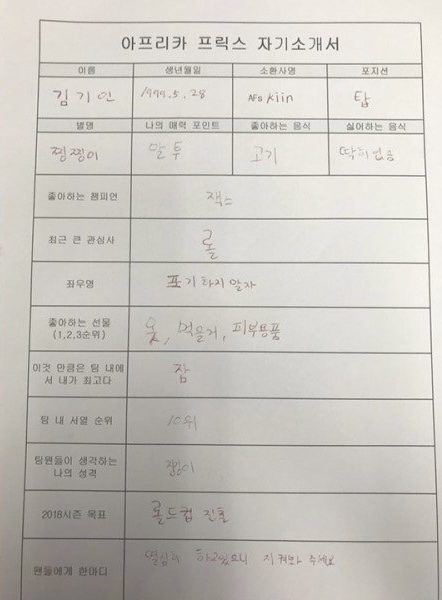 아프리카 프릭스 자기소개서
이름 생년월일 소환사명 포지션
김기인 1999.5.28 AFs Kiin 탑
별명 나의 매력 포인트 좋아하는 음식 싫어하는 음식
찡찡이 말투 고기 딱히없음
좋아하는 챔피언 잭스
최근 큰 관심사 롤
좌우명 포기하지말자
좋아하는 선물
(1,2,3순위) 옷, 먹을거, 피부용품
이것 만큼은 팀 내에
서 내가 최고다 잠
팀 내 서열 순위 10위
팀원들이 생각하는
나의 성격
2018시즌 목표 롤드컵 진출
팬들에게 한마디 열심히 하고있으니 지켜봐 주세요